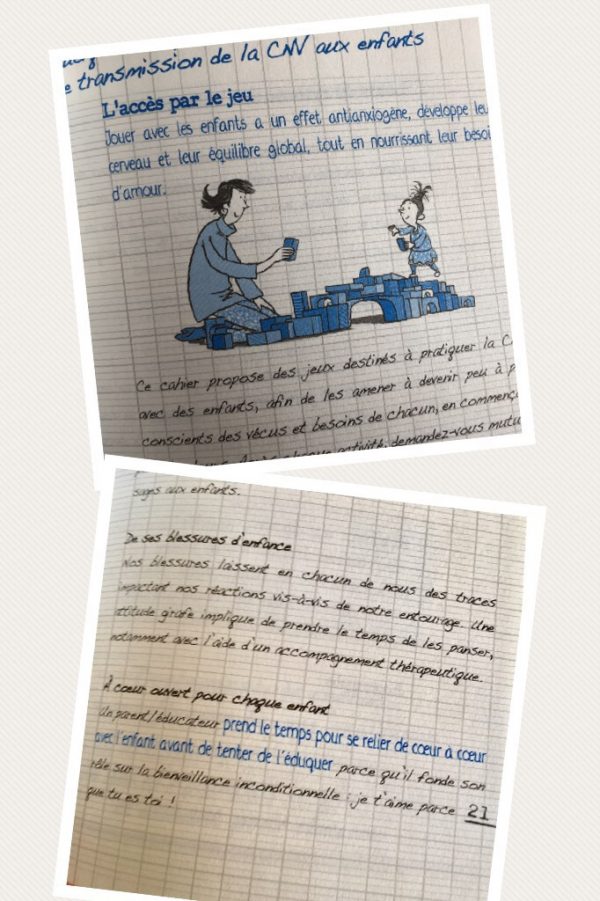 e transmission de la CNV aux enfants
L'accès par le jeu
Jouer avec les enfants a un effet antianxiogène, développe leu
cerveau et leur équilibre global, tout en nourrissant leur besoi
d'amour.
Ce cahier propose des jeux destinés à pratiquer la C
avec des enfants, afin de les amener à devenir peu à p
conscients des vécus et besoins de chacun, en commenç
chaque activité, demandez-vous mutu
sages aux enfants.
De ses blessures d'enfance
Nos blessures laissent en chacun de nous des traces
impactant nos réactions vis-à-vis de notre entourage. Une
attitude girafe implique de prendre le temps de les panser,
notamment avec l'aide d'un accompagnement thérapeutique.
À cœur ouvert pour chaque enfant
Un parent/éducateur prend le temps pour se relier de cœur à cœur
avec l'enfant avant de tenter de l'éduquer parce qu'il fonde son
rôle sur la bienveillance inconditionnelle : je t'aime parce
que tu es toi !
21